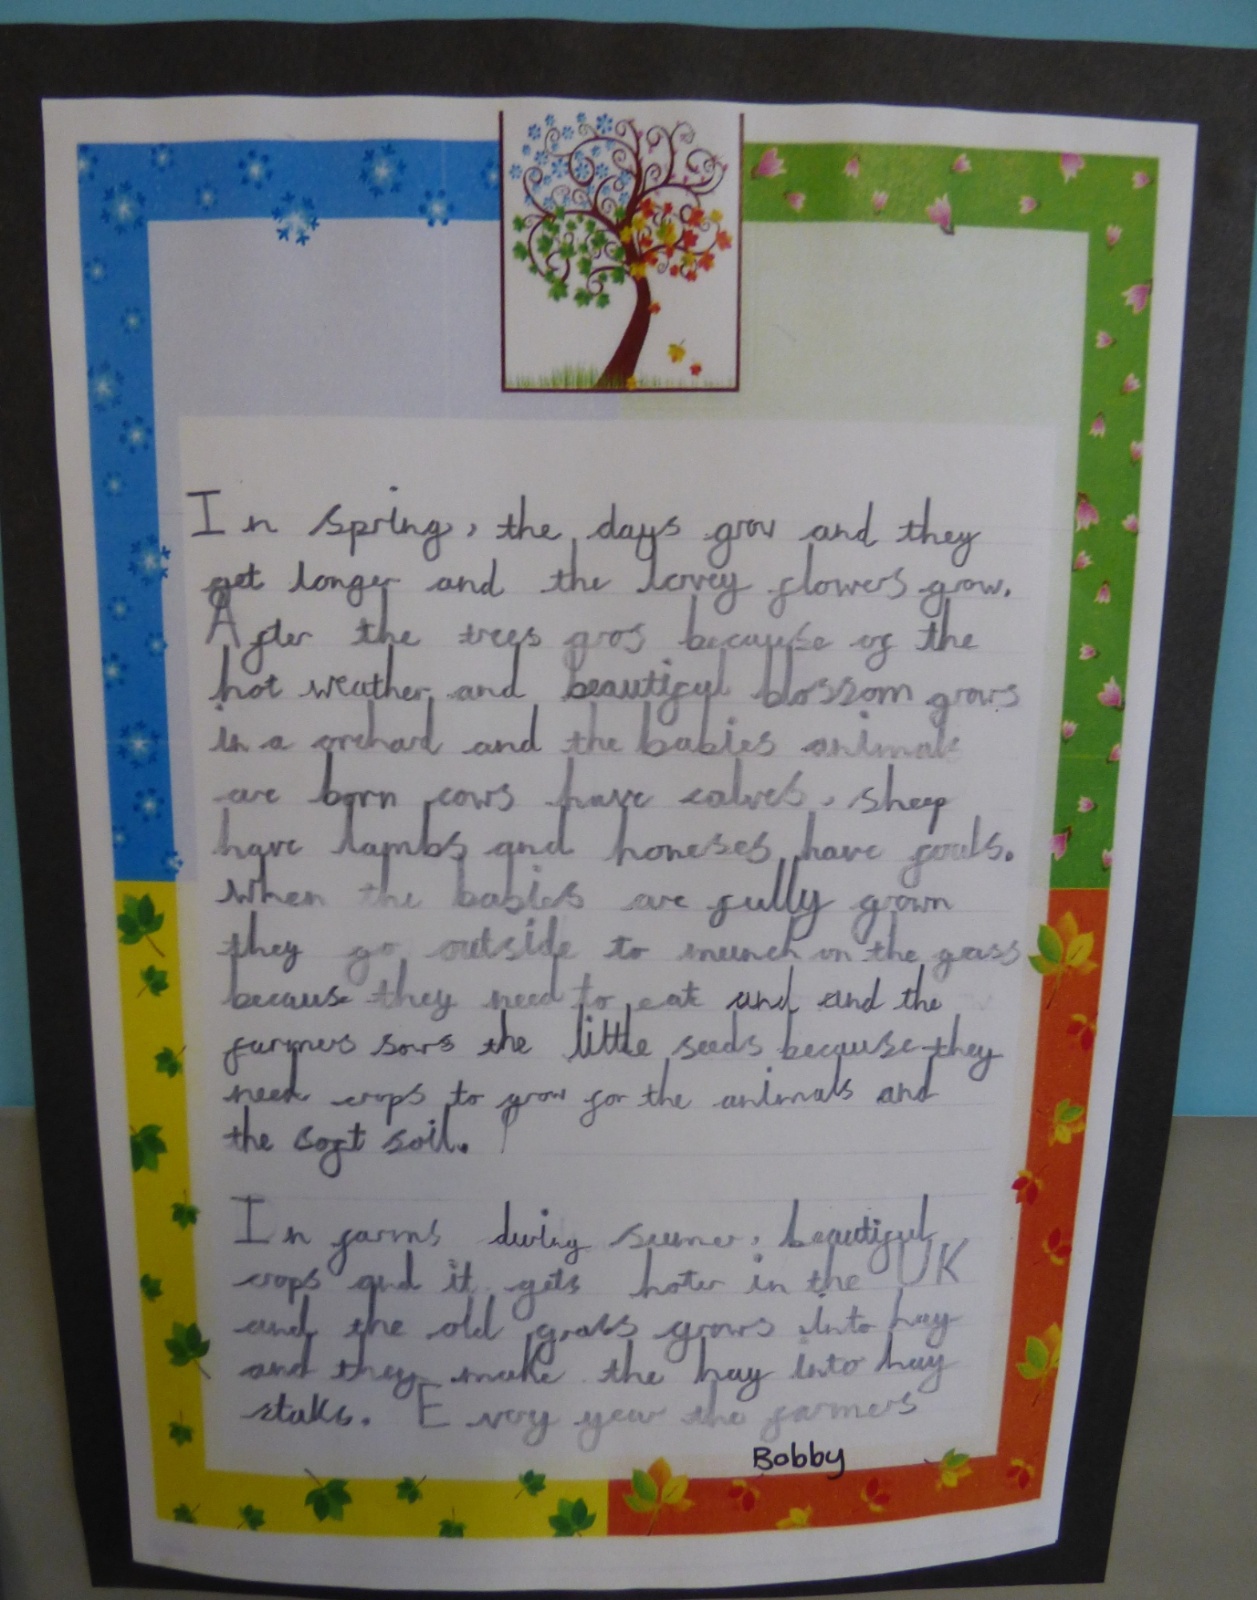 In spring, the days grow and they
get longer and the lovey flowers grow.
After the trees gros because of the
hot weather and beautiful blossom grows
in a orchard and the babies animals
are born cows have calves, sheep
have lambs and horeses have foals.
When the babies are fully grown
they go outside to munch on the grass
because they need to eat and and the
farmers sows the little seeds because they
need crops to grow for the animals and
the soft soil.
In farms during sumer, beautiful
crops and it gets hoter in the UK
and the old grass grows into hay
and they make the hay into hay
staks. Every year the farmers
Bobby